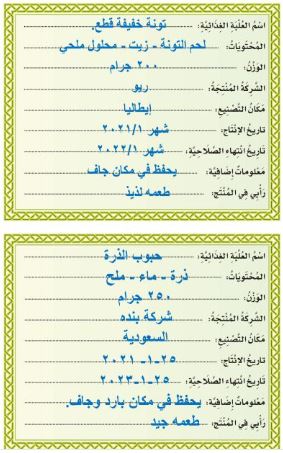 اسْمُ العُلْبَةِ الغِذَائِيَّةِ: تونة خفيفة قطع.
المُحْتَوَيَاتُ: لحم التونة - زيت - محلول ملحي
الوَزْنُ: ٢٠٠ جرام
الشَّرِكَةُ المُنْتِجَةُ: ريو
مَكَانُ التَّصْنِيعِ: إيطاليا
تاريخُ الإنْتَاجِ: شهر ٢٠٢١/١
تاريخُ انْتِهَاءِ الصَّلَاحِيَّةِ: شهر ٢٠٢٢/١
مَعْلُومَاتٌ إضَافِيَّةٌ: يحفظ في مكان جاف
رَأْيِي فِي المُنْتَجِ: طعمه لذيذ
اسْمُ العُلْبَةِ الغِذَائِيَّةِ: حبوب الذرة
المُحْتَوَيَاتُ: ذرة - ماء - ملح
الوَزْنُ: ٢٥٠ جرام
الشَّرِكَةُ المُنْتِجَةُ: شركة بنده
مَكَانُ التَّصْنِيعِ: السعودية
تاريخُ الإنْتَاجِ: ٢٥-١- ٢٠٢١
تاريخُ انْتِهَاءِ الصَّلَاحِيَّةِ: ٢٥-١-٢٠٢٣
مَعْلُومَاتٌ إضَافِيَّةٌ: يحفظ في مكان بارد وجاف.
رَأْيِي فِي المُنْتَجِ: طعمه جيد